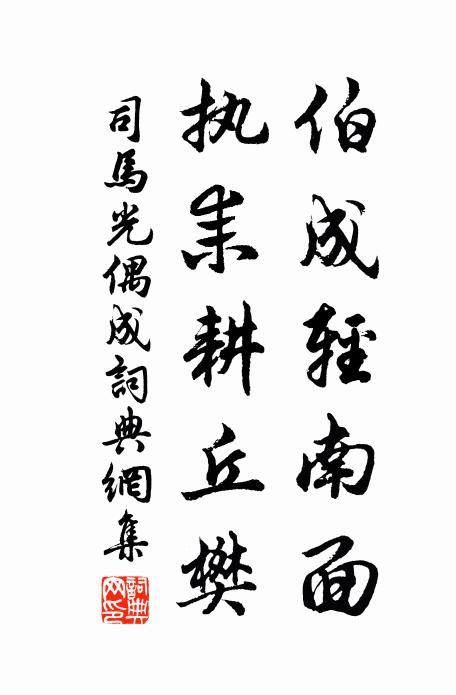 伯成輕南面
执耒耕丘樊
司馬光偶成詞典網集
詞典网印